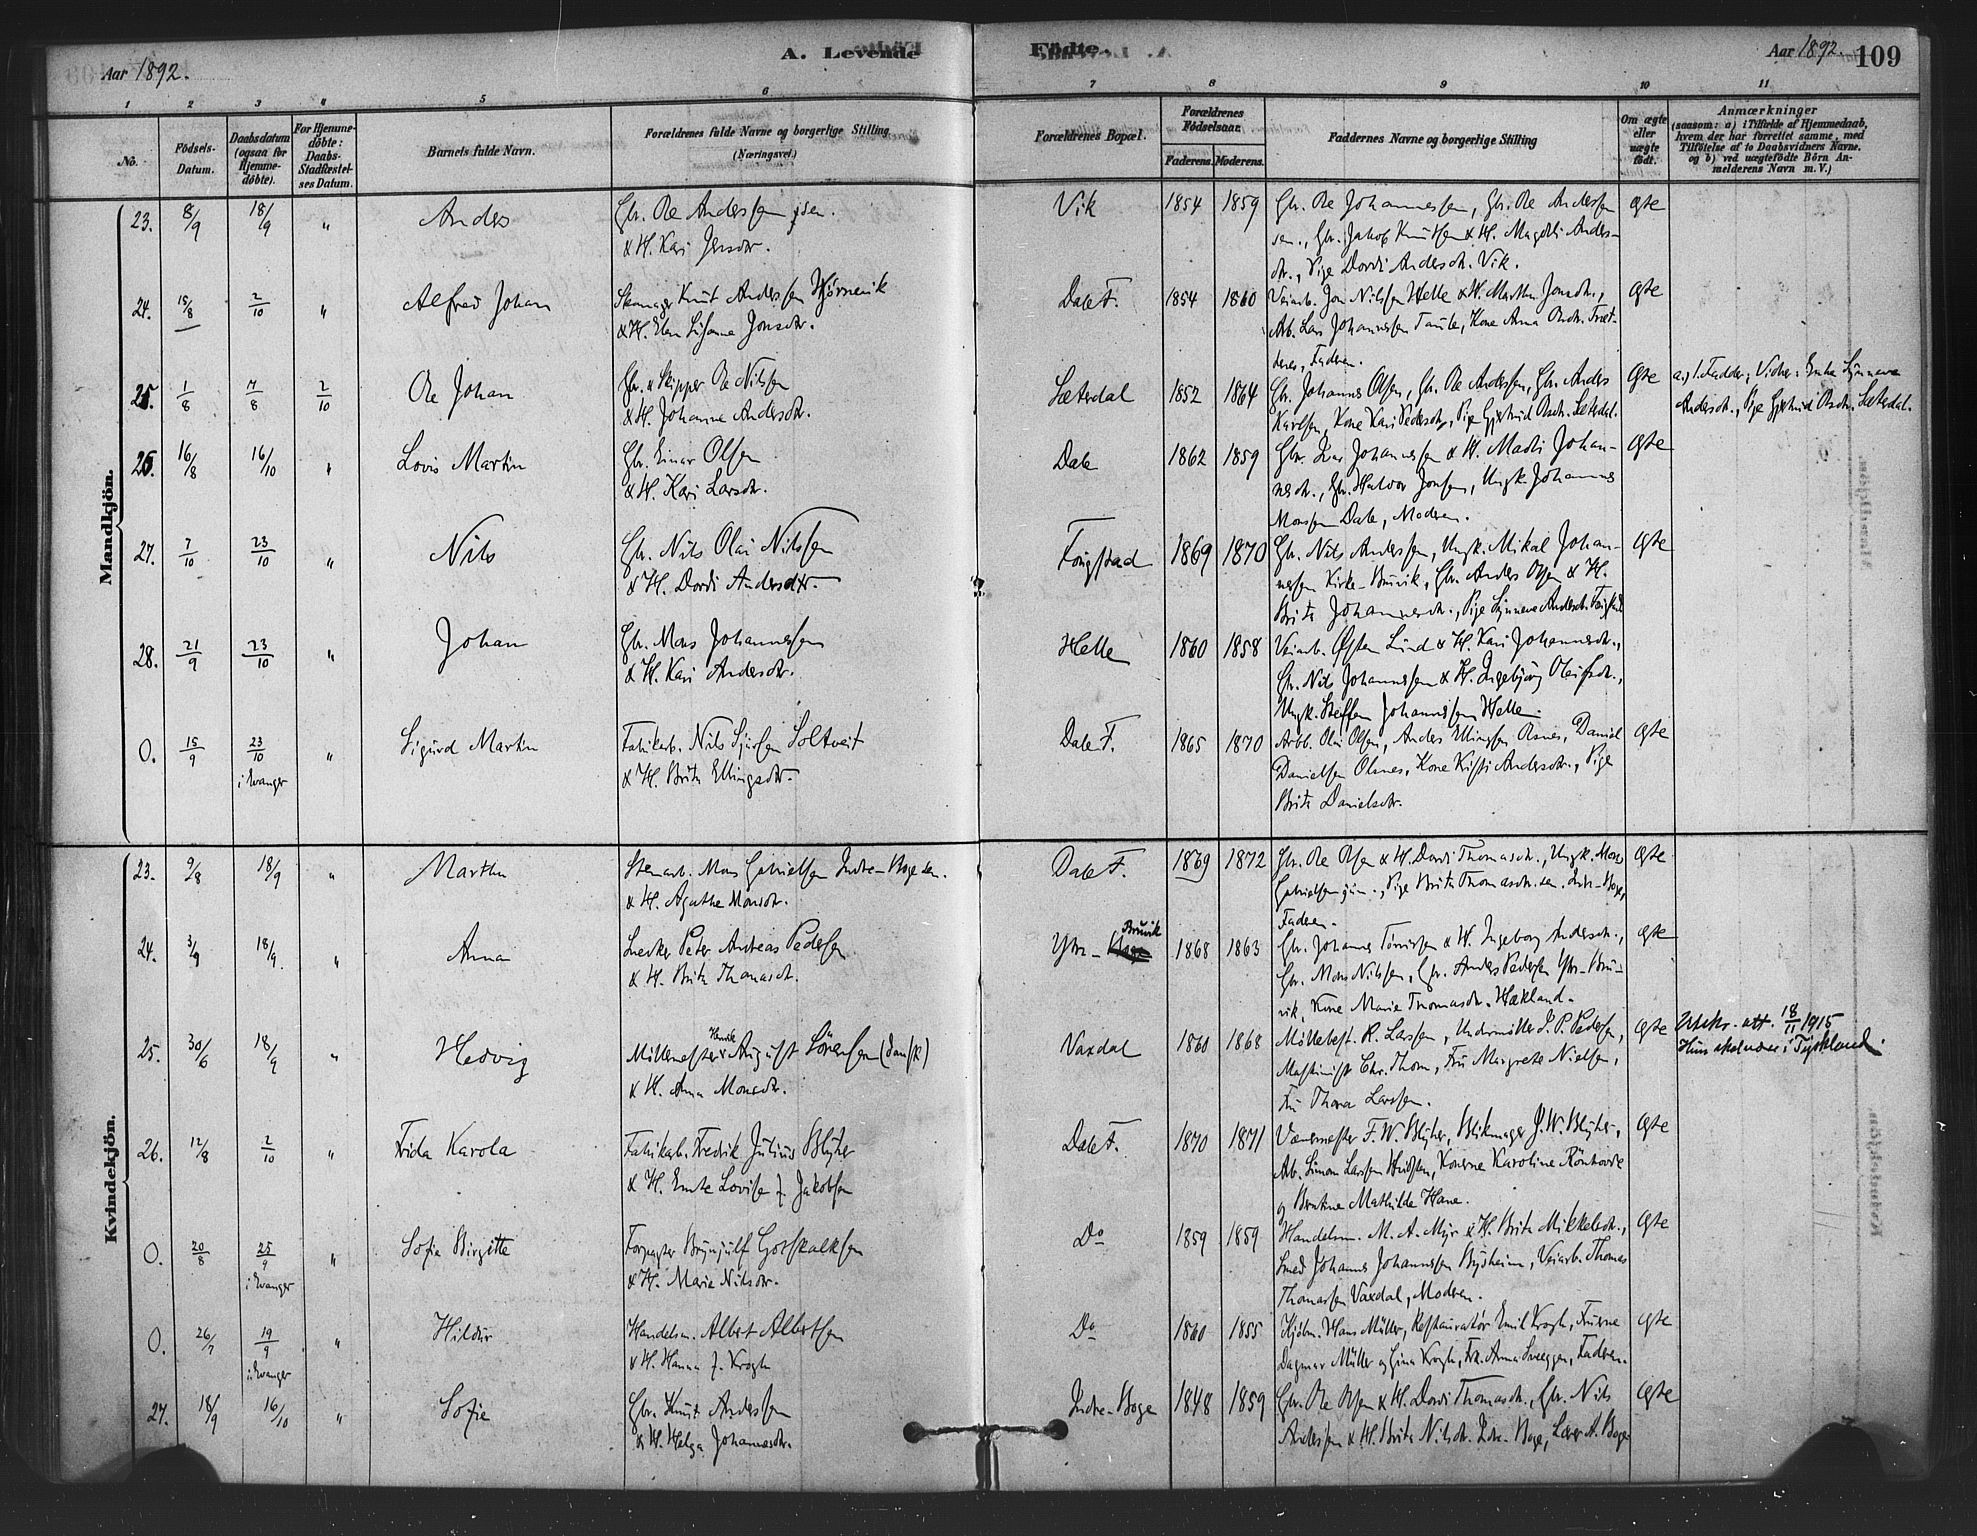 Aar 1892.
A. Levende Fødte.
Aar 1892.
109
1 2 3 4 5 6 7 8 9 10 11
No.
Fødsels-Datum.
Daabsdatum (ogsaa for Hjemme-døbte).
For Hjemme-døbte: Daabs-Stadfæstel-ses Datum.
Barnets fulde Navn.
Forældrenes fulde Navne og borgerlige Stilling (Næringsvei.)
Forældrenes Bopæl.
Forældrenes Fødselsaar.
Faderens. Moderens.
Faddernes Navne og borgerlige Stilling
Om ægte eller uægte født.
Anmærkninger
(saasom: a) i Tilfælde af Hjemmedaab, hvem der har forrettet samme, med Tilføielse af to Daabsvidners Navne. og b) ved uægtefødte Børn An-melderens Navn m. V.)
Mandkjön.
23. 8/9 18/9 " Anders
Gbr. Ole Anderssen jsen.
& H. Kari Jensdtr.
Vik 1854 1859
Gbr. Ole Johannessen, Gbr. Ole Anderssen
sen., Gbr. Jakob Knutsen & H. Magdli Anders-
dtr., Pige Dordi Andersdtr. Vik.
Ægte
24. 15/8 2/10 " Alfred Johan
Knut Anderssen Hjörnevik
& H. Elen Susanne Jonsdtr.
Dale F. 1854 1860
Veiarb. Jon Nilssen Helle & H. Martha Jonsdtr.,
Arb. Lars Johannessen Taule, Kone Anna
Faderen.
Ægte
25. 1/8 7/8 2/10 Ole Johan
Gbr. & Skipper Ole Nilssen
& H. Johanna Andersdtr.
Sæterdal 1852 1864
Gbr. Johannes Olsen, Gbr. Ole Anderssen, Gbr. Anders
Karlsen, Kone Kari Pedersdtr, Pige Gjertrud Olsdtr. Sæterdal.
Ægte
a.) 1. Fadder; Vidner: Enke Synneva
Andersdtr., Pige Gjertrud Olsdtr. Sæterdal.
26. 16/8 16/10 " Lovis Martin
Gbr. Einar Olsen
& H. Kari Larsdtr.
Dale 1862 1859
Gbr. Ivar Johannessen & H. Madli Johan-
nesdtr., Gbr. Halvor Jonsen, Ungk. Johannes
Monssen Dale, Moderen.
Ægte
27. 7/10 23/10 " Nils
Gbr. Nils Olai Nilssen
& H. Dordi Andersdtr.
Fougstad 1869 1870
Gbr. Nils Anderssen, Ungk. Mikal Johan-
nessen Kirke-Bruvik, Gbr. Anders Olsen & H.
Brita Johannesdtr., Pige Synneva Andersdtr. Fougstad
Ægte
28. 21/9 23/10 " Johan
Gbr. Mons Johannessen
& H. Kari Andersdtr.
Helle 1860 1858
Veiarb. Östen Lund & H. Kari Johannesdtr.,
Gbr. Nils Johannessen & H. Ingebjörg Olufsdtr.,
Ungk. Steffen Johannessen Helle.
0. 15/9 23/10 " Sigurd Martin
i Evanger
Fabrikarb. Nils Sjursen Soltveit
& H. Brita Ellingsdtr.
Dale F. 1865 1870
Arbb. Olai Olsen, Anders Ellingsen Olsnes, Daniel
Danielsen Olsnes, Kone Kisti Andersdtr., Pige
Brita Danielsdtr.
Ægte
Kvindekjön.
23. 9/8 18/9 " Martha
Stenarb. Mons Gabrielsen Indre-Boge sen.
& H. Agathe Monsdtr.
Dale F. 1869 1872
Gbr. Ole Olsen & H. Dordi Thomasdtr., Ungk. Mons
Gabrielsen jun., Pige Brita Thomasdtr. sen. Indre-Boge,
Faderen.
Ægte
24. 3/9 18/9 " Anna
Snedker Peter Andreas Pedersen
& H. Brita Thomasdtr.
Bruvik
Ytre- 1868 1863
Gbr. Johannes Tomissen & H. Ingeborg Andersdtr.,
Gbr. Mons Nilssen, Gbr. Anders Pedersen Ytre-Bru-
vik, Kone Marie Thomasdtr. Hækland.
Ægte
25. 30/6 18/9 " Hedvig
Henrik
Möllemester August Sörensen (dansk)
& H. Anna Monsdtr.
Vaxdal 1860 1868
Möllebest. R. Larssen, Undermöller J. P. Pedersen,
Maskinist Chr. Thom, Fru Margrete Nielsen,
Fru Thora Larssen.
Ægte
Utskr. att. 18/11 1915
Hun i Tyskland.
26. 12/8 2/10 " Frida Karola
Fabrikarb. Fredrik Julius Blyher
& H. Emte Lovise f. Jakobsen
Dale F. 1870 1871
Vævemester F. W. Blyher, Blikmager J. W. Blyher,
Arb. Simon Larssen, Konerne Karoline Rönhovde
og Berntine Mathilde Hane.
Ægte
0. 20/8 25/9 " Sofie Birgitte
i Evanger
Forpagter Brynjulf Gotskalksen
& H. Marie Nilsdtr.
Do 1859 1859
Handelsm. M. A. Myr & H. Brita Mikkelsdtr.,
Smed Johannes Johannessen Bysheim, Veiarb. Thomas
Thomassen Vaxdal, Moderen.
Ægte
0. 26/7 19/9 " Hildur
i Evanger
Handelsm. Albert Albertsen
& H. Hanna f. Krogh
Do 1860 1855
Kjöbm. Hans Müller, Restauratör Emil Krogh, Fruerne
Dagmar Müller og Gina Krogh, Frk. Anna Sveggen, Faderen.
Ægte
27. 18/9 16/10 " Sofie
Gbr. Knut Anderssen
& H. Helga Johannesdtr.
Indre-Boge 1848 1859
Gbr. Ole Olsen & H. Dordi Thomasdtr., Gbr. Nils
Anderssen & H. Brita Nilsdtr. Indre-Boge, Lærer A. Boge
Ægte